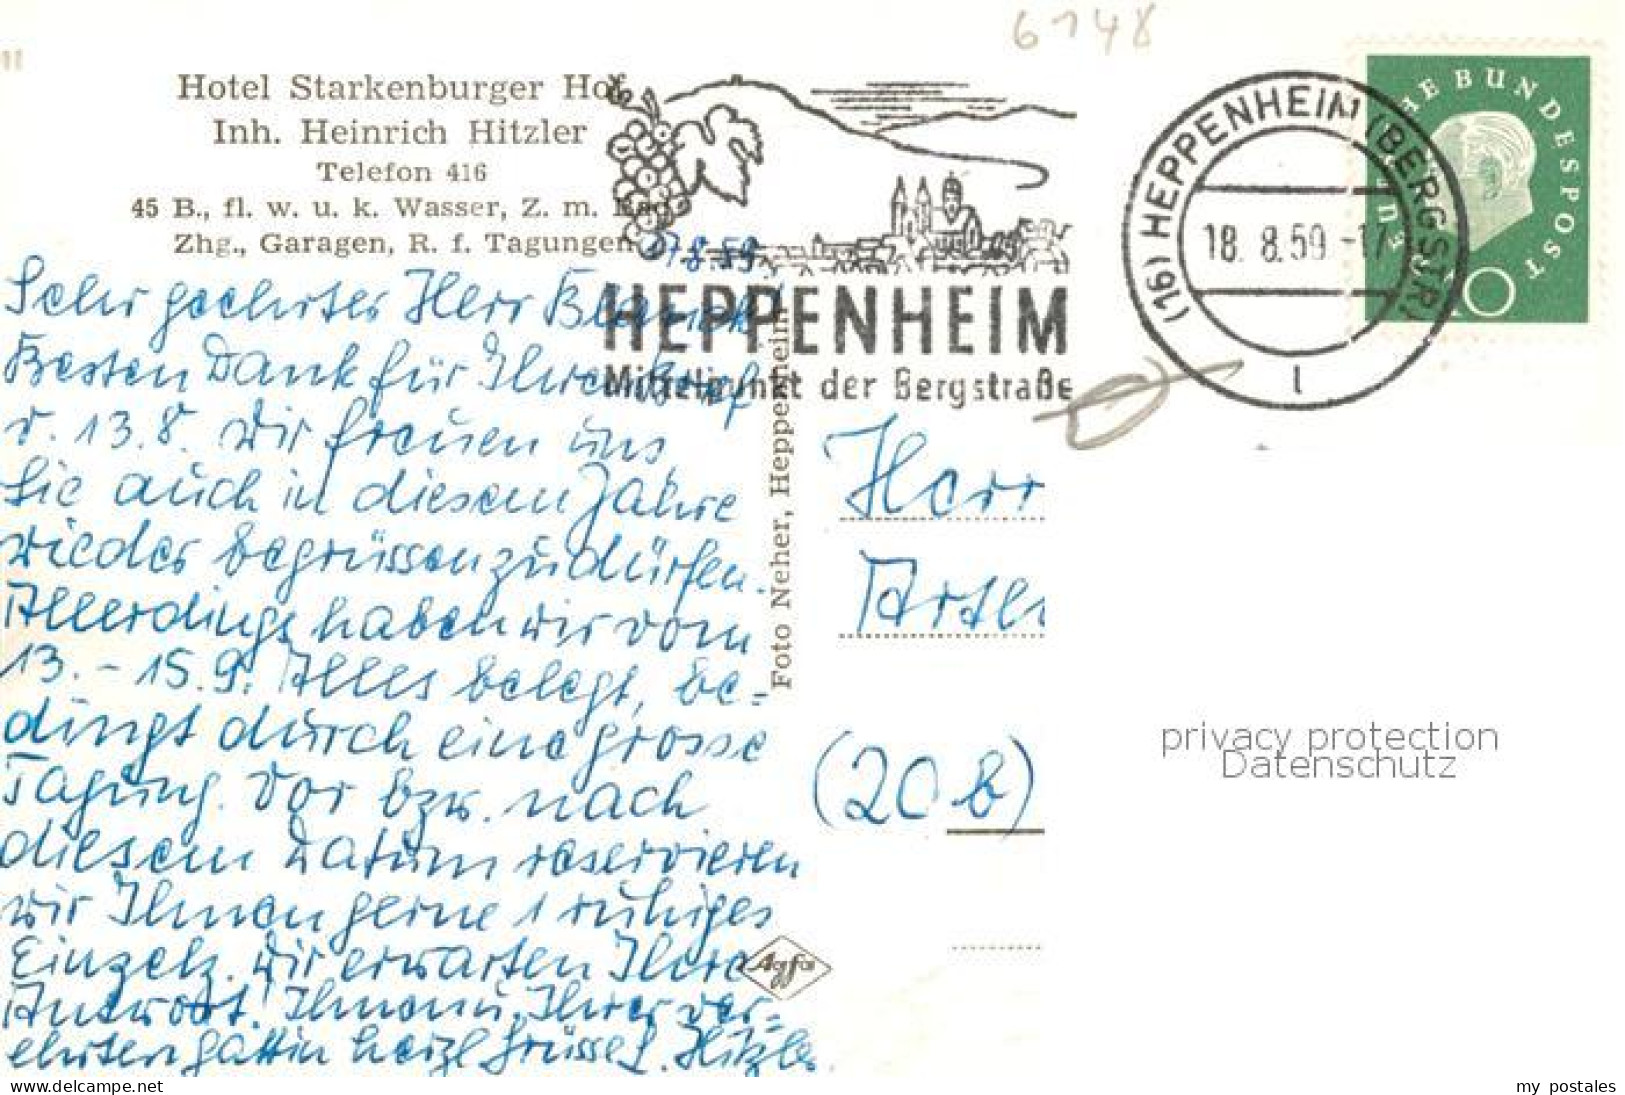 6148
Hotel Starkenburger Hof
Inh. Heinrich Hitzler
Telefon 416
45 B., fl. w. u. k. Wasser, Z. m. Bad
Zhg., Garagen, R. f. Tagungen
17.8.59
Sehr geehrter Herr
Besten Dank für Ihren Brief
v. 13.8. Wir freuen uns,
Sie auch in diesem Jahre
wieder begrüssen zu dürfen.
Allerdings haben wir vom
13. - 15.9. Alles belegt, be=
dingt durch eine grosse
Tagung. Vor bzw. nach
diesem Datum reservieren
wir Ihnen gerne 1 ruhiges
Einzelz. Wir erwarten Ihre
Antwort. Ihnen u. Ihrer ver=
ehrten Gattin herzl. Grüsse f. Hitzler
HEPPENHEIM
Mittelpunkt der Bergstraße
(16) HEPPENHEIM (BERGSTR)
18. 8.59 -17
l
DEUTSCHE BUNDESPOST
10
Foto Neher, Heppenheim
Agfa
Herrn
(20 b)
privacy protection
Datenschutz
oldthing.de
my postales